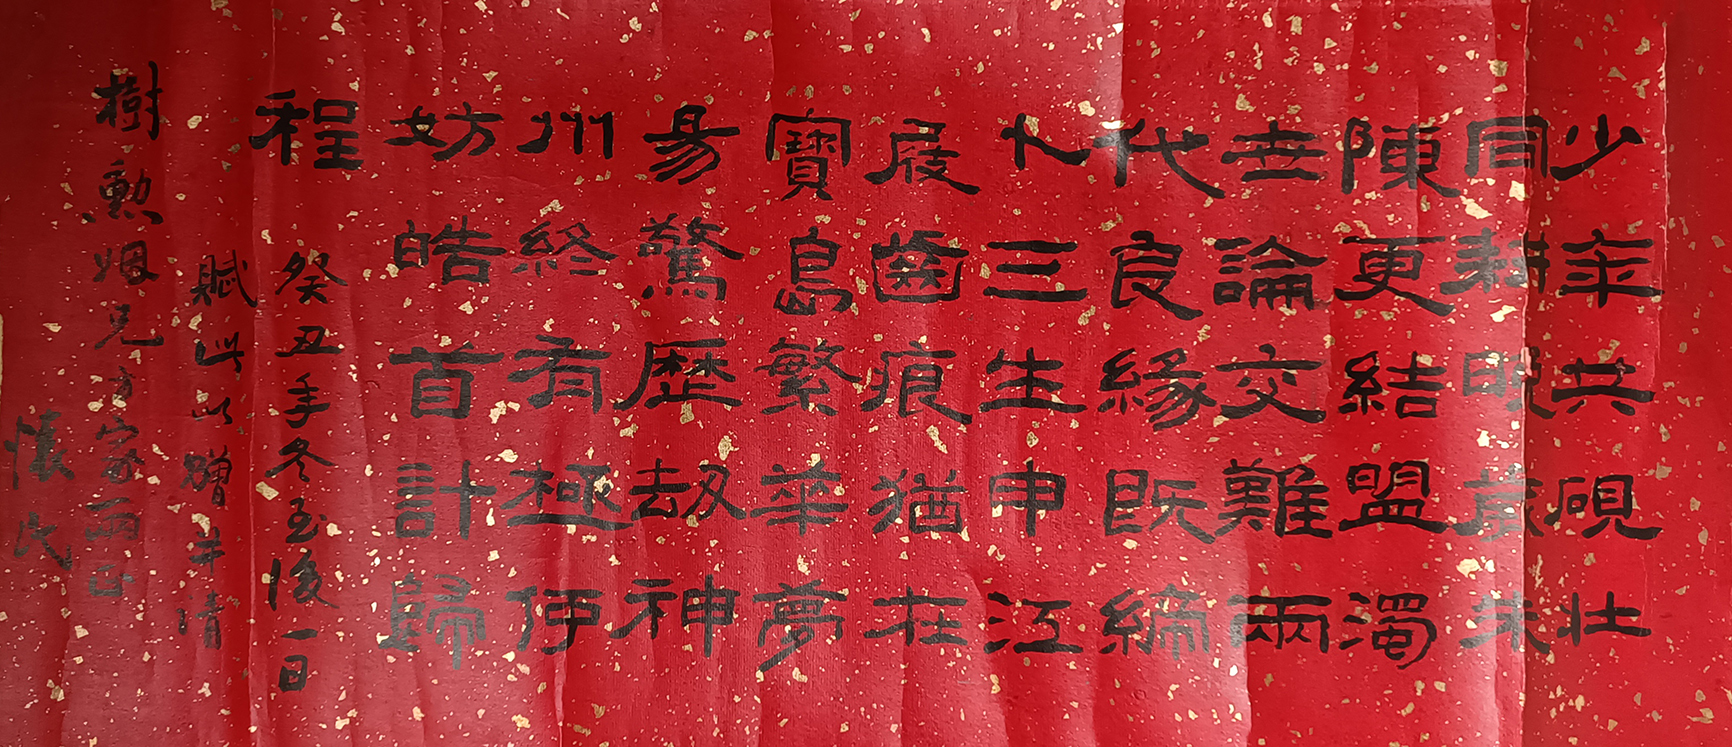 少年共硯壯
同耕晚歲朱
陳更結盟濁
世論交難兩
代良緣既締
卜三生申江
屐齒痕猶在
寶島繁華夢
易驚歷劫神
州終有極何
妨皓首計歸
程
癸丑年冬至後一日
賦此以贈并請
樹勳姻兄方家兩正
懷民